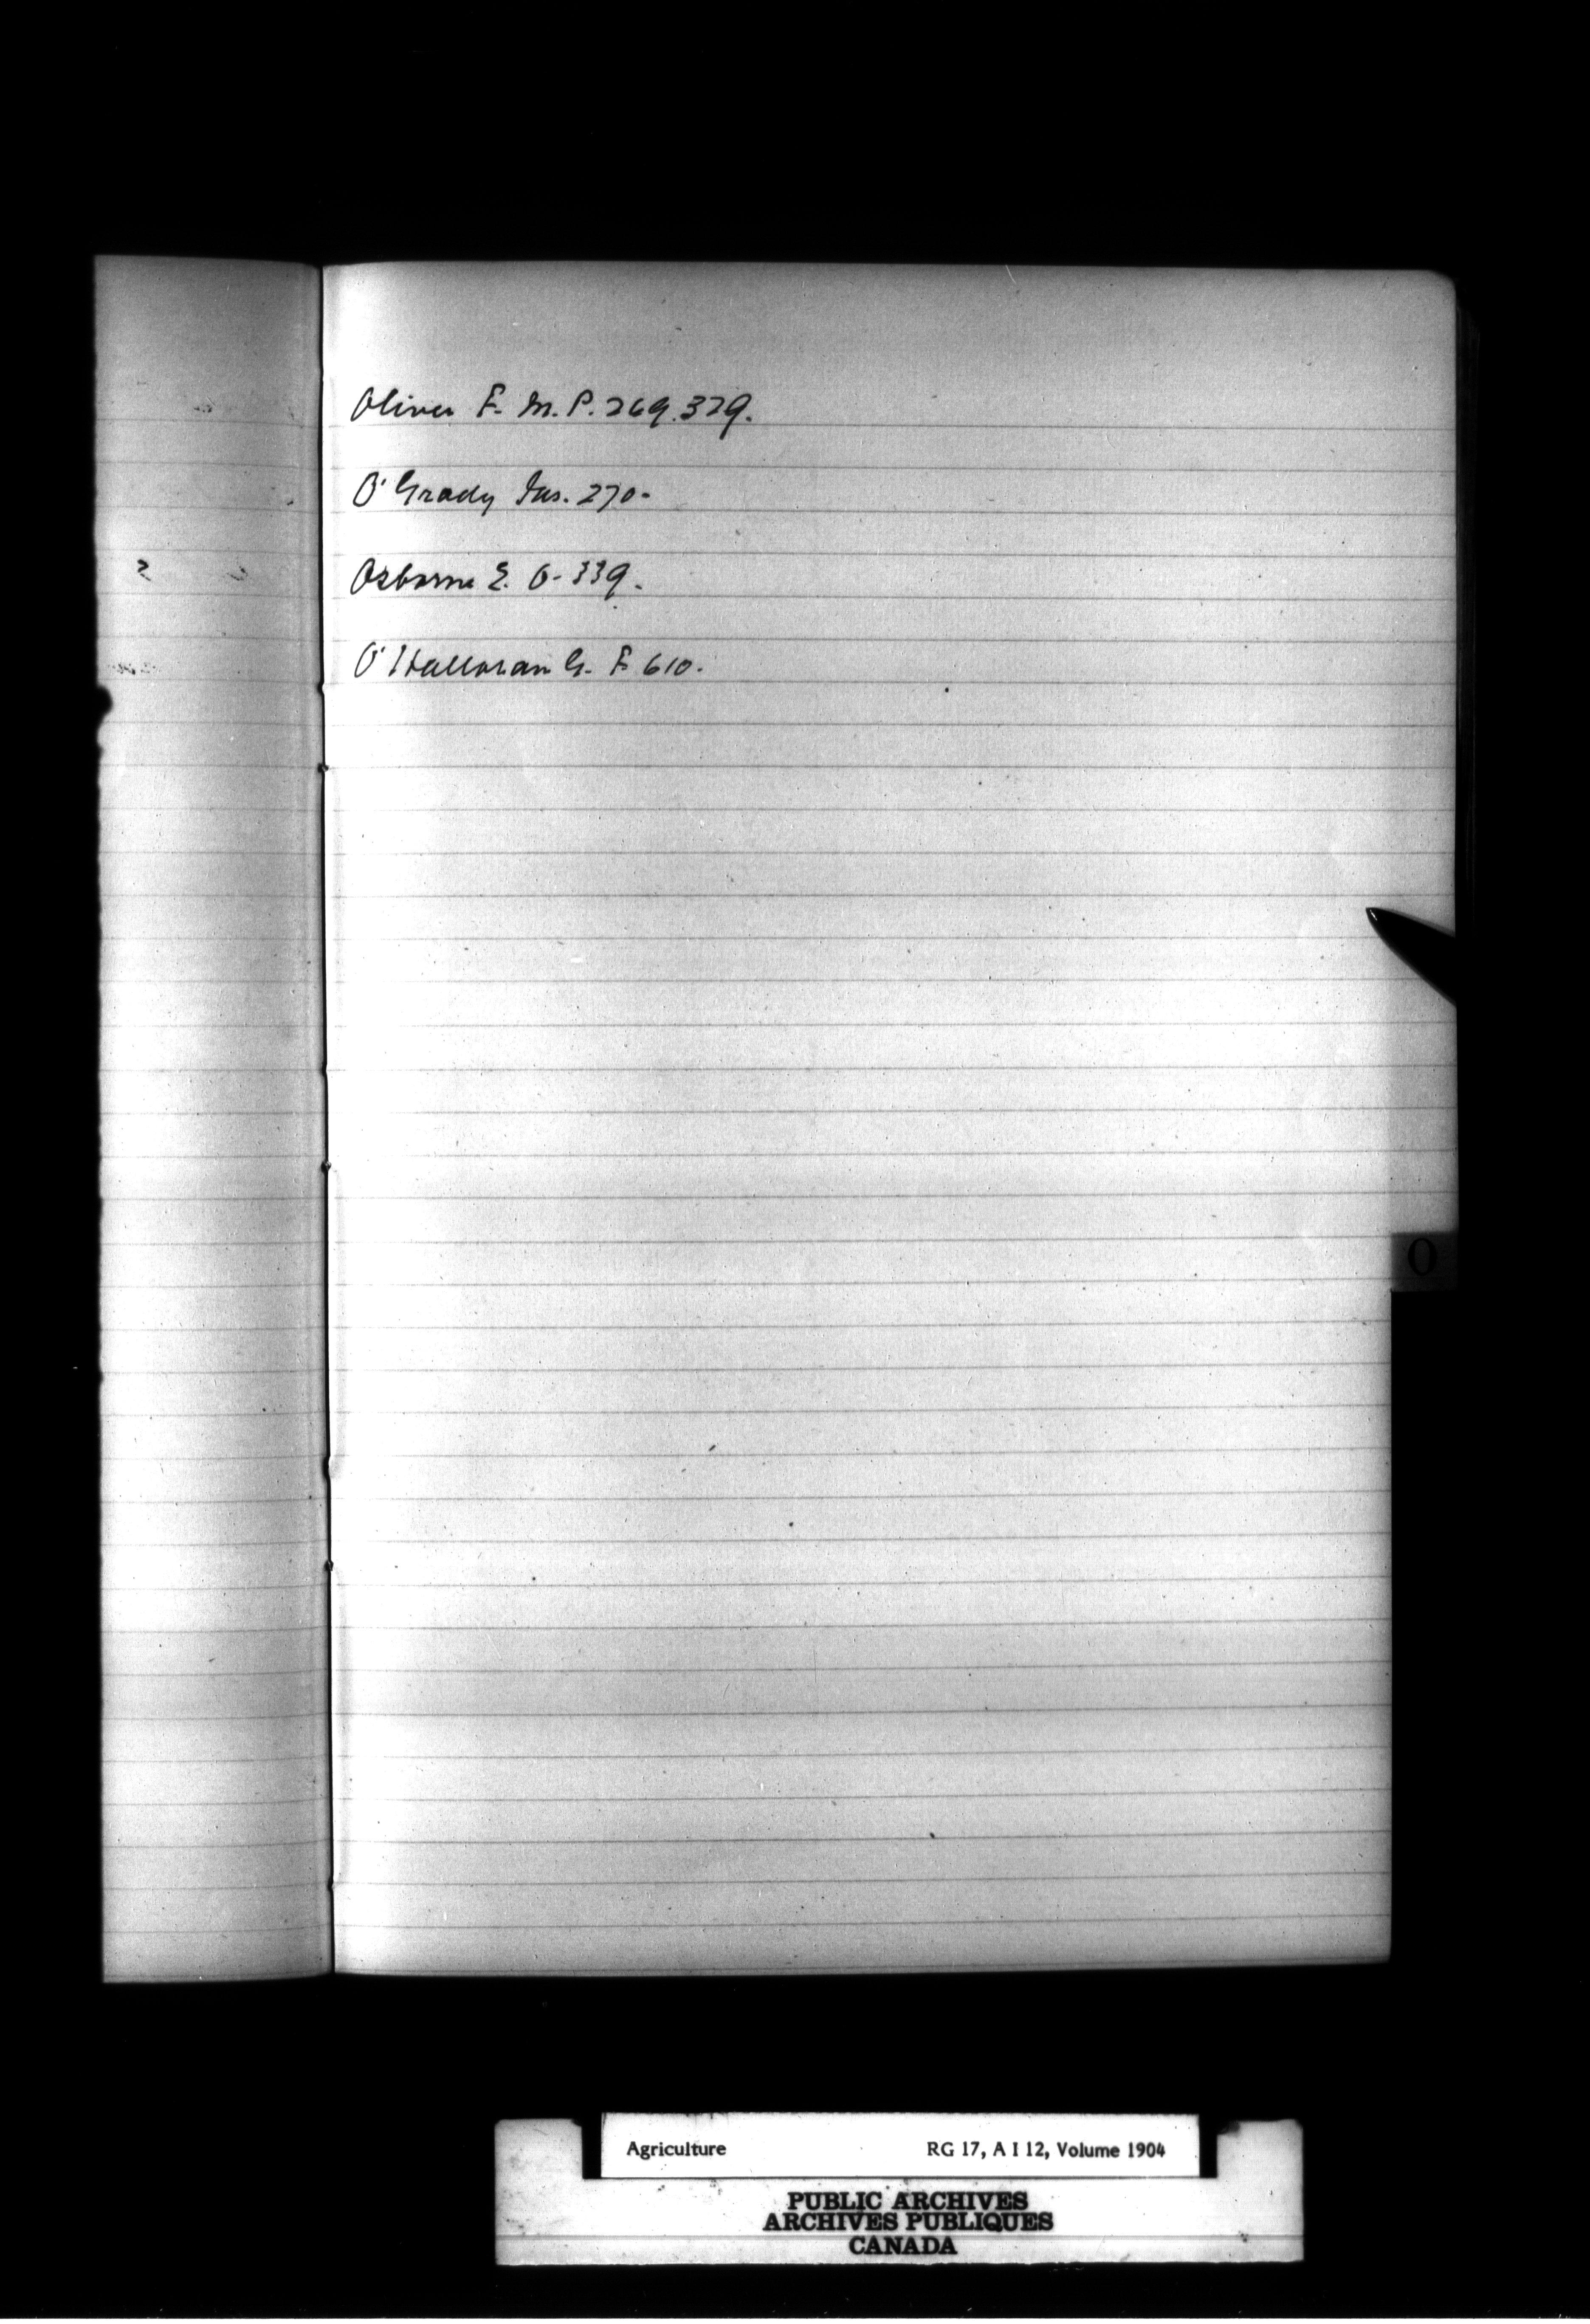 Oliver F. M. P. 269. 329.
O'Grady Jas. 270-
Osborne E. O- 339.
O'Halloran G. F. 610.
O
Agriculture RG 17, A I 12, Volume 1904
PUBLIC ARCHIVES
ARCHIVES PUBLIQUES
CANADA